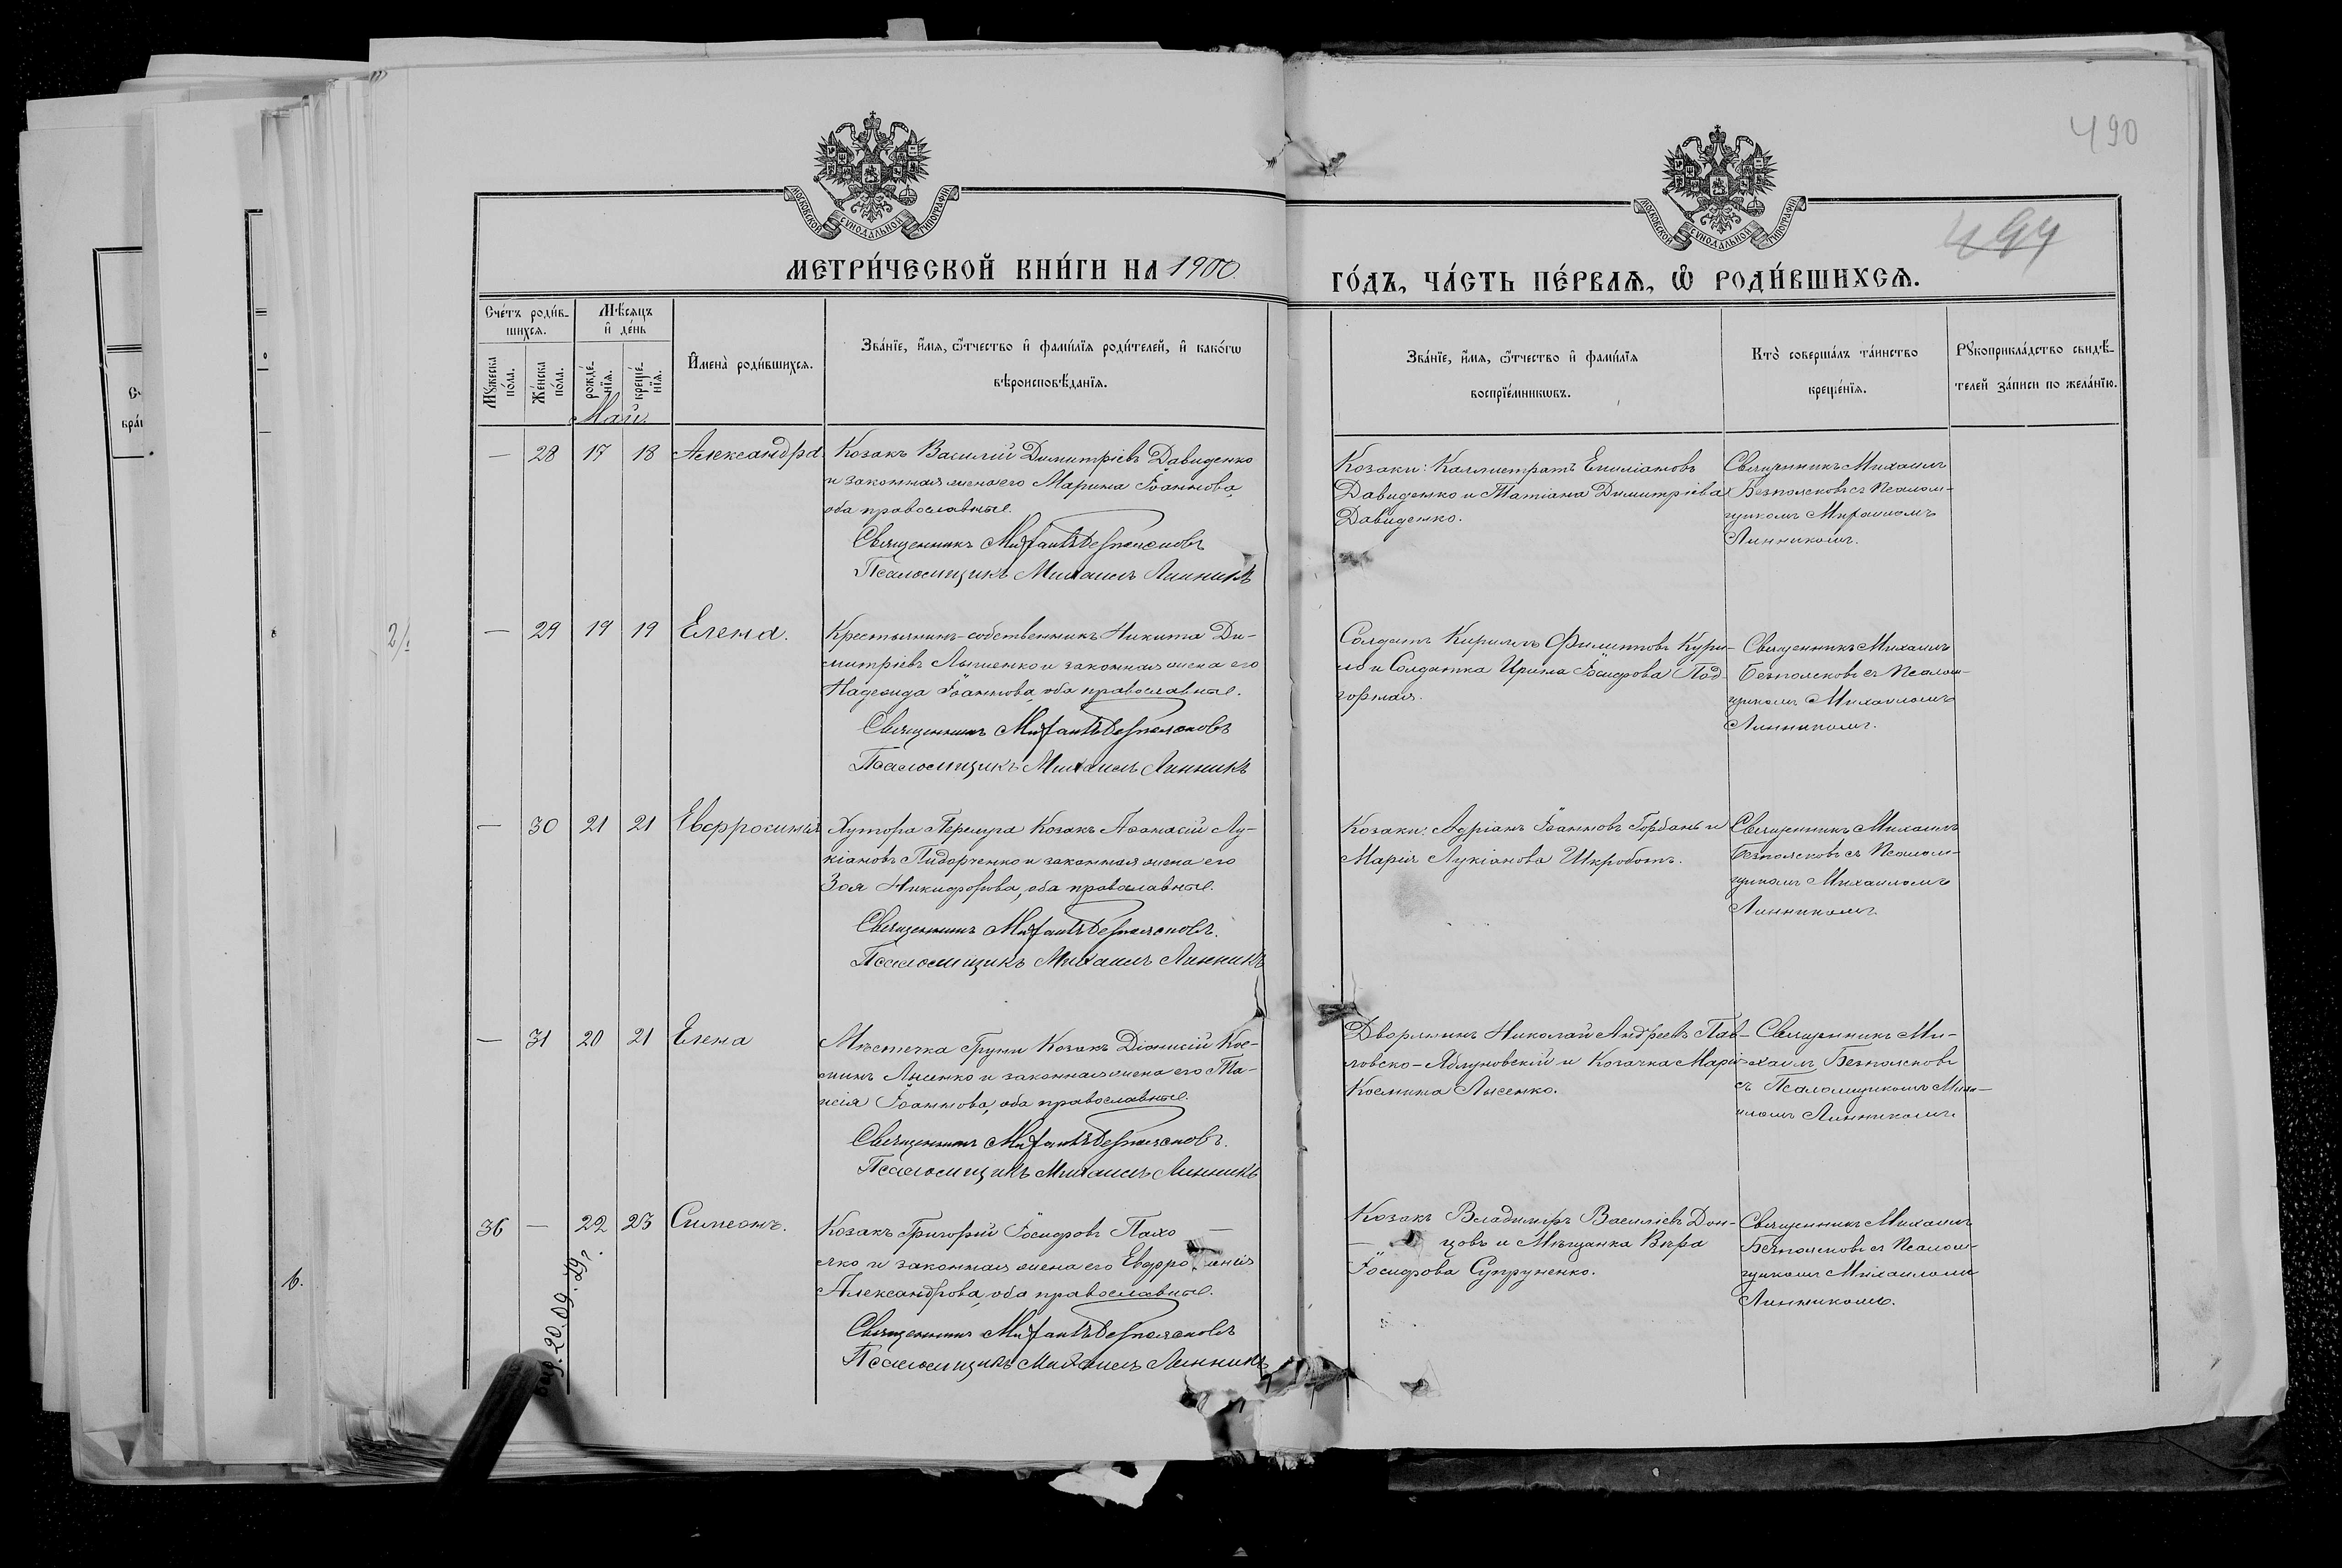 490
494
МОСКОВСКОЙ СУНОДАЛЬНОЙ ТИПОГРАФІИ
МОСКОВСКОЙ СУНОДАЛЬНОЙ ТИПОГРАФІИ
МЕТРИ́ЧЕСКОЙ КНИ́ГИ НА 1900
ГО́ДЪ, ЧА́СТЬ ПЕ́РВАѦ, Ѽ РОДИ́ВШИХСѦ.
Сче́тъ роди́в-
шихсѧ.
Мѣ́сѧцъ
и҆ де́нь
Мꙋжеска
по́ла.
Же́нска
по́ла.
рожде́-
нїѧ.
креще́-
нїѧ.
И҆мена̀ роди́вшихсѧ.
Зва́нїе, и҆́мѧ, ѻ҆́тчество и҆ фами́лїѧ роди́телей, и҆ како́гѡ
вѣроисповѣ́данїѧ.
Зва́нїе, и҆́мѧ, ѻ҆́тчество и҆ фами́лїѧ
воспрїе́мникѡвъ.
Кто̀ соверша́лъ та́инство
креще́нїѧ.
Рꙋкоприкла́дство свидѣ́-
телей за́писи по жела́нїю.
Май
— 28 17 18 Александра
Козакъ Василій Димитріевъ Давиденко
и законная жена его Марина Іоаннова,
оба православные.
Священникъ Михаилъ Безпоясковъ
Псаломщикъ Михаилъ Линникъ
Козаки: Каллистратъ Емиліановъ
Давиденко и Татіана Димитріева
Давиденко.
Священникъ Михаилъ
Безпоясковъ съ Псалом-
щикомъ Михаиломъ
Линникомъ.
2/.
— 29 19 19 Елена.
Крестьянинъ-собственникъ Никита Ди-
митріевъ Лышенко и законная жена его
Надежда Іоаннова, оба православные.
Священникъ Михаилъ Безпоясковъ
Псаломщикъ Михаилъ Линникъ
Солдатъ Кириллъ Филипповъ Кури-
ло и Солдатка Ирина Іосифова Под-
горная.
Священникъ Михаилъ
Безпоясковъ съ Псалом-
щикомъ Михаиломъ
Линникомъ.
— 30 21 21 Евфросинія
Хутора Перелуга Козакъ Аѳанасій Лу-
кіановъ Пидорченко и законная жена его
Зоя Никифорова, оба православные.
Священникъ Михаилъ Безпоясковъ.
Псаломщикъ Михаилъ Линникъ
Козаки: Адріанъ Іоанновъ Горбань и
Марія Лукіанова Шкроботъ.
Священникъ Михаилъ
Безпоясковъ съ Псалом-
щикомъ Михаиломъ
Линникомъ.
— 31 20 21 Елена
Мѣстечка Груни Козакъ Діонисій Кос-
минъ Лысенко и законная жена его Та-
исія Іоаннова, оба православные.
Священникъ Михаилъ Безпоясковъ.
Псаломщикъ Михаилъ Линникъ
Дворянинъ Николай Андреевъ Пав-
ловско-Яблуновскій и Козачка Марія
Космина Лысенко.
Священникъ Ми-
хаилъ Безпоясковъ
съ Псаломщикомъ Миха-
иломъ Линникомъ.
36 — 22 23 Симеонъ.
Козакъ Григорій Іосифовъ Пахо —
и законная жена его Евфросинія
Александрова, оба православные.
Священникъ Михаилъ Безпоясковъ
Псаломщикъ Михаилъ Линникъ
Козакъ Владиміръ Василіевъ Дон-
— цовъ и Мѣщанка Вѣра
Іосифова Супруненко.
Священникъ Михаилъ
Безпоясковъ съ Псалом-
щикомъ Михаиломъ
Линникомъ.
20.09.79г.